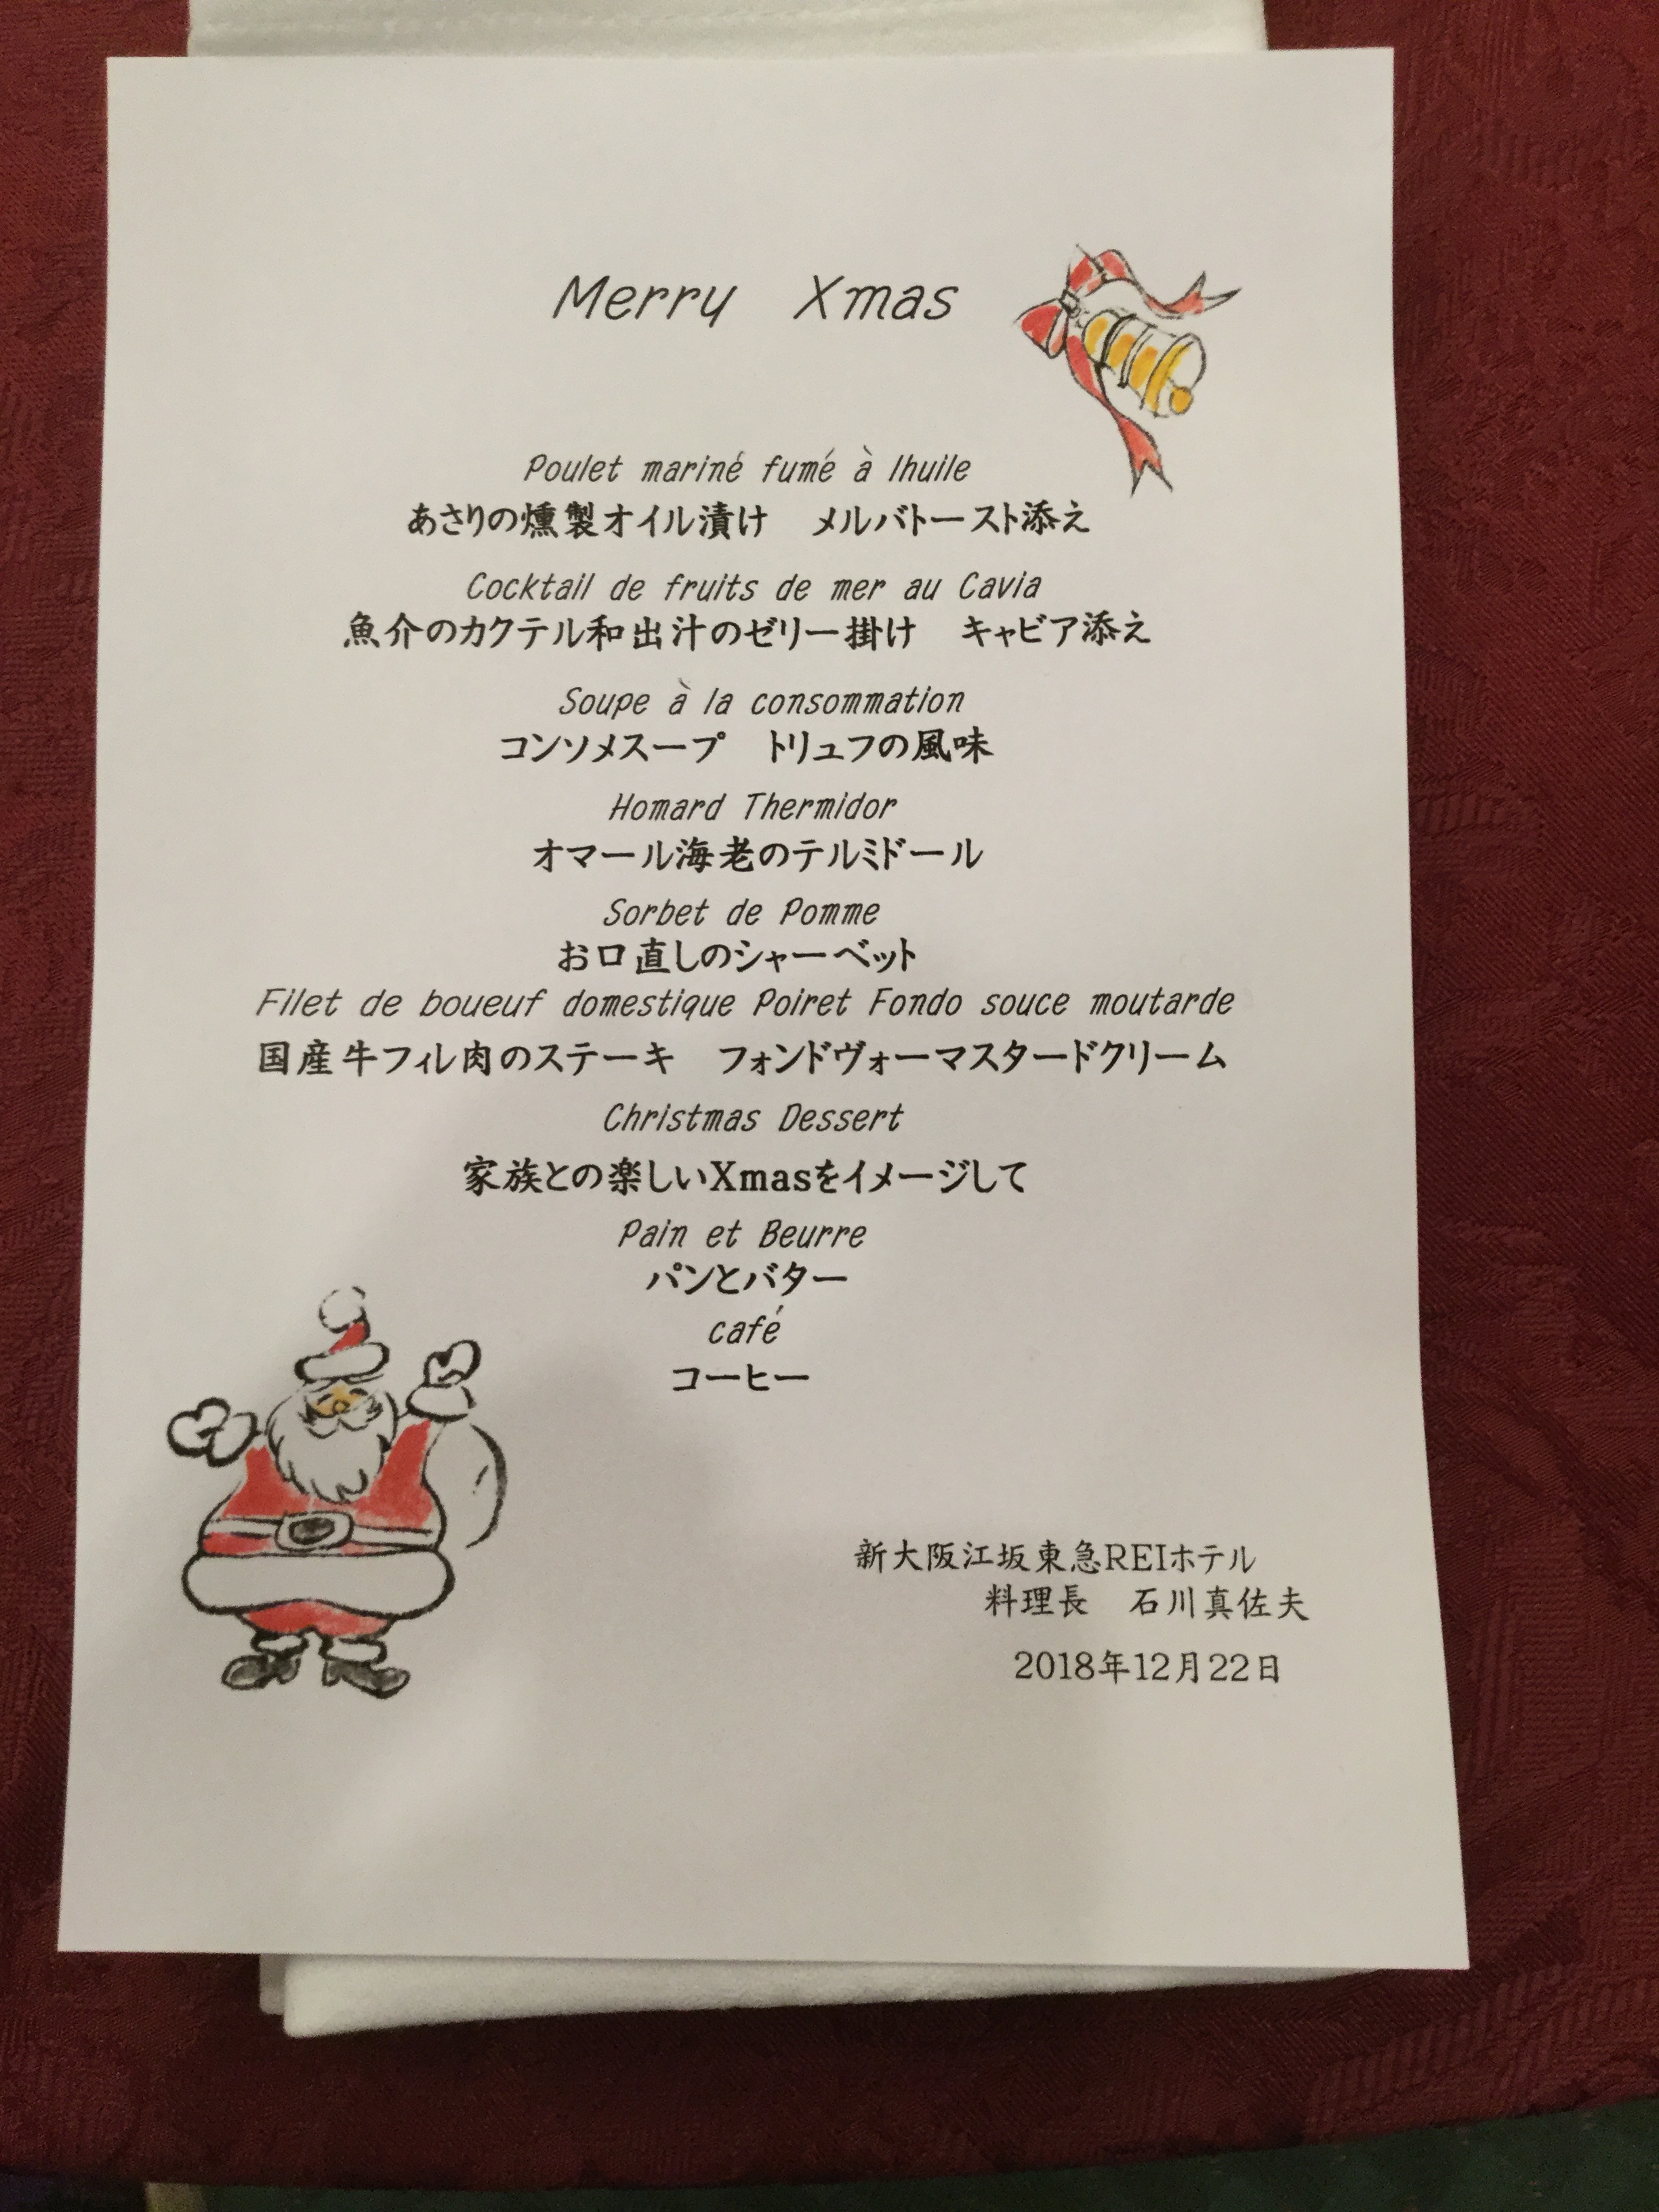 Merry Xmas
Poulet mariné fumé à lhuile
あさりの燻製オイル漬け　メルバトースト添え
Cocktail de fruits de mer au Cavia
魚介のカクテル和出汁のゼリー掛け　キャビア添え
Soupe à la consommation
コンソメスープ　トリュフの風味
Homard Thermidor
オマール海老のテルミドール
Sorbet de Pomme
お口直しのシャーベット
Filet de boueuf domestique Poiret Fondo souce moutarde
国産牛フィレ肉のステーキ　フォンドヴォーマスタードクリーム
Christmas Dessert
家族との楽しいXmasをイメージして
Pain et Beurre
パンとバター
café
コーヒー
新大阪江坂東急REIホテル
料理長　石川真佐夫
2018年12月22日